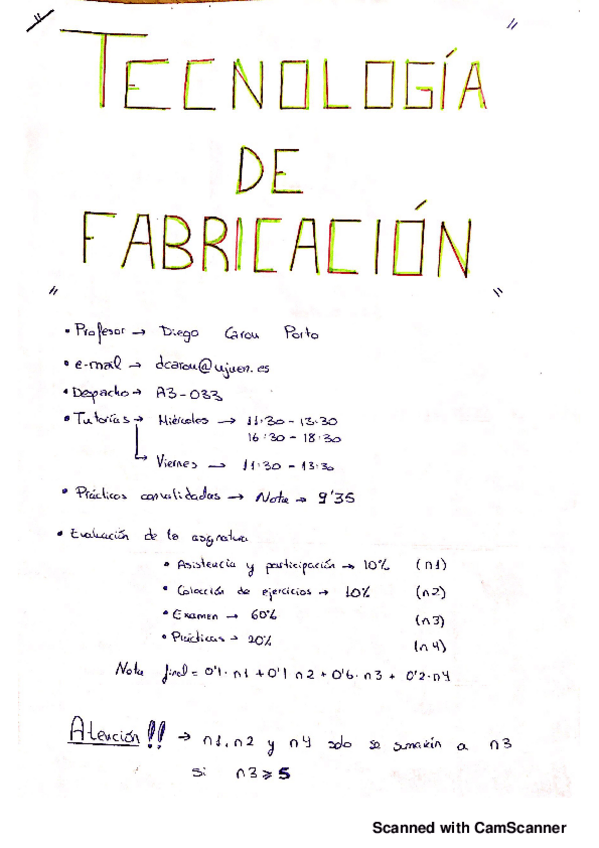 "
"
TECNOLOGÍA
DE
FABRICACIÓN
"
"
• Profesor → Diego Carou Porto
• e-mail → dcarou@ujaen.es
• Despacho → A3-033
• Tutorías → Miércoles → 11:30 - 13:30
16:30 - 18:30
↳ Viernes → 11:30 - 13:30
• Prácticas convalidadas → Nota → 9'35
• Evaluación de la asignatura
• Asistencia y participación → 10% (n1)
• Colección de ejercicios → 10% (n2)
• Examen → 60% (n3)
• Prácticas → 20% (n4)
Nota final = 0'1· n1 + 0'1 n2 + 0'6· n3 + 0'2· n4
Atención!! → n1, n2 y n4 solo se sumarán a n3
si n3 ≥ 5
Scanned with CamScanner